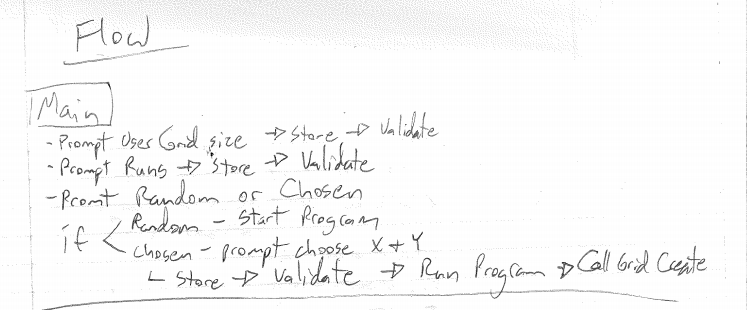 Flow
Main
- Prompt User Grid size → Store → Validate
- Prompt Runs → Store → Validate
- Promt Random or Chosen
if < Random - Start Program
Chosen - prompt choose X + Y
└ Store → Validate → Run Program → Call Grid Create